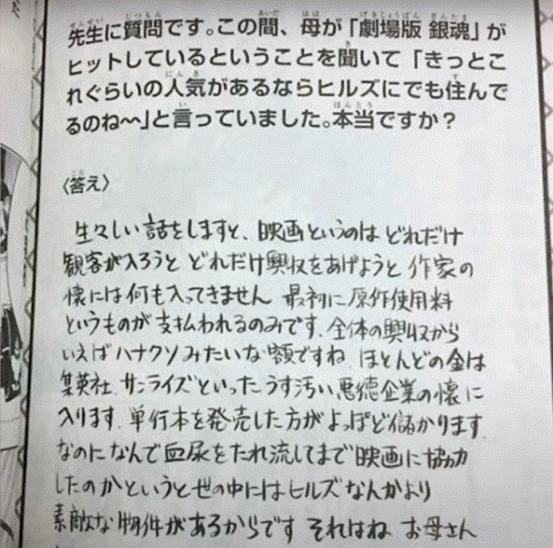 先生に質問です。この間、母が「劇場版 銀魂」が
ヒットしているということを聞いて「きっとこ
れぐらいの人気があるならヒルズにでも住んで
るのね〜」と言っていました。本当ですか？
〈答え〉
生々しい話をしますと、映画というのは どれだけ
観客が入ろうと どれだけ興収をあげようと 作家の
懐には何も入ってきません 最初に原作使用料
というものが支払われるのみです。全体の興収から
いえばハナクソみたいな額ですね。ほとんどの金は
集英社、サンライズといったうす汚い悪徳企業の懐に
入ります。単行本を発売した方がよっぽど儲かります
なのになんで血尿をたれ流してまで映画に協力
したのかというと世の中にはヒルズなんかより
素敵な物件があるからです それはね お母さん